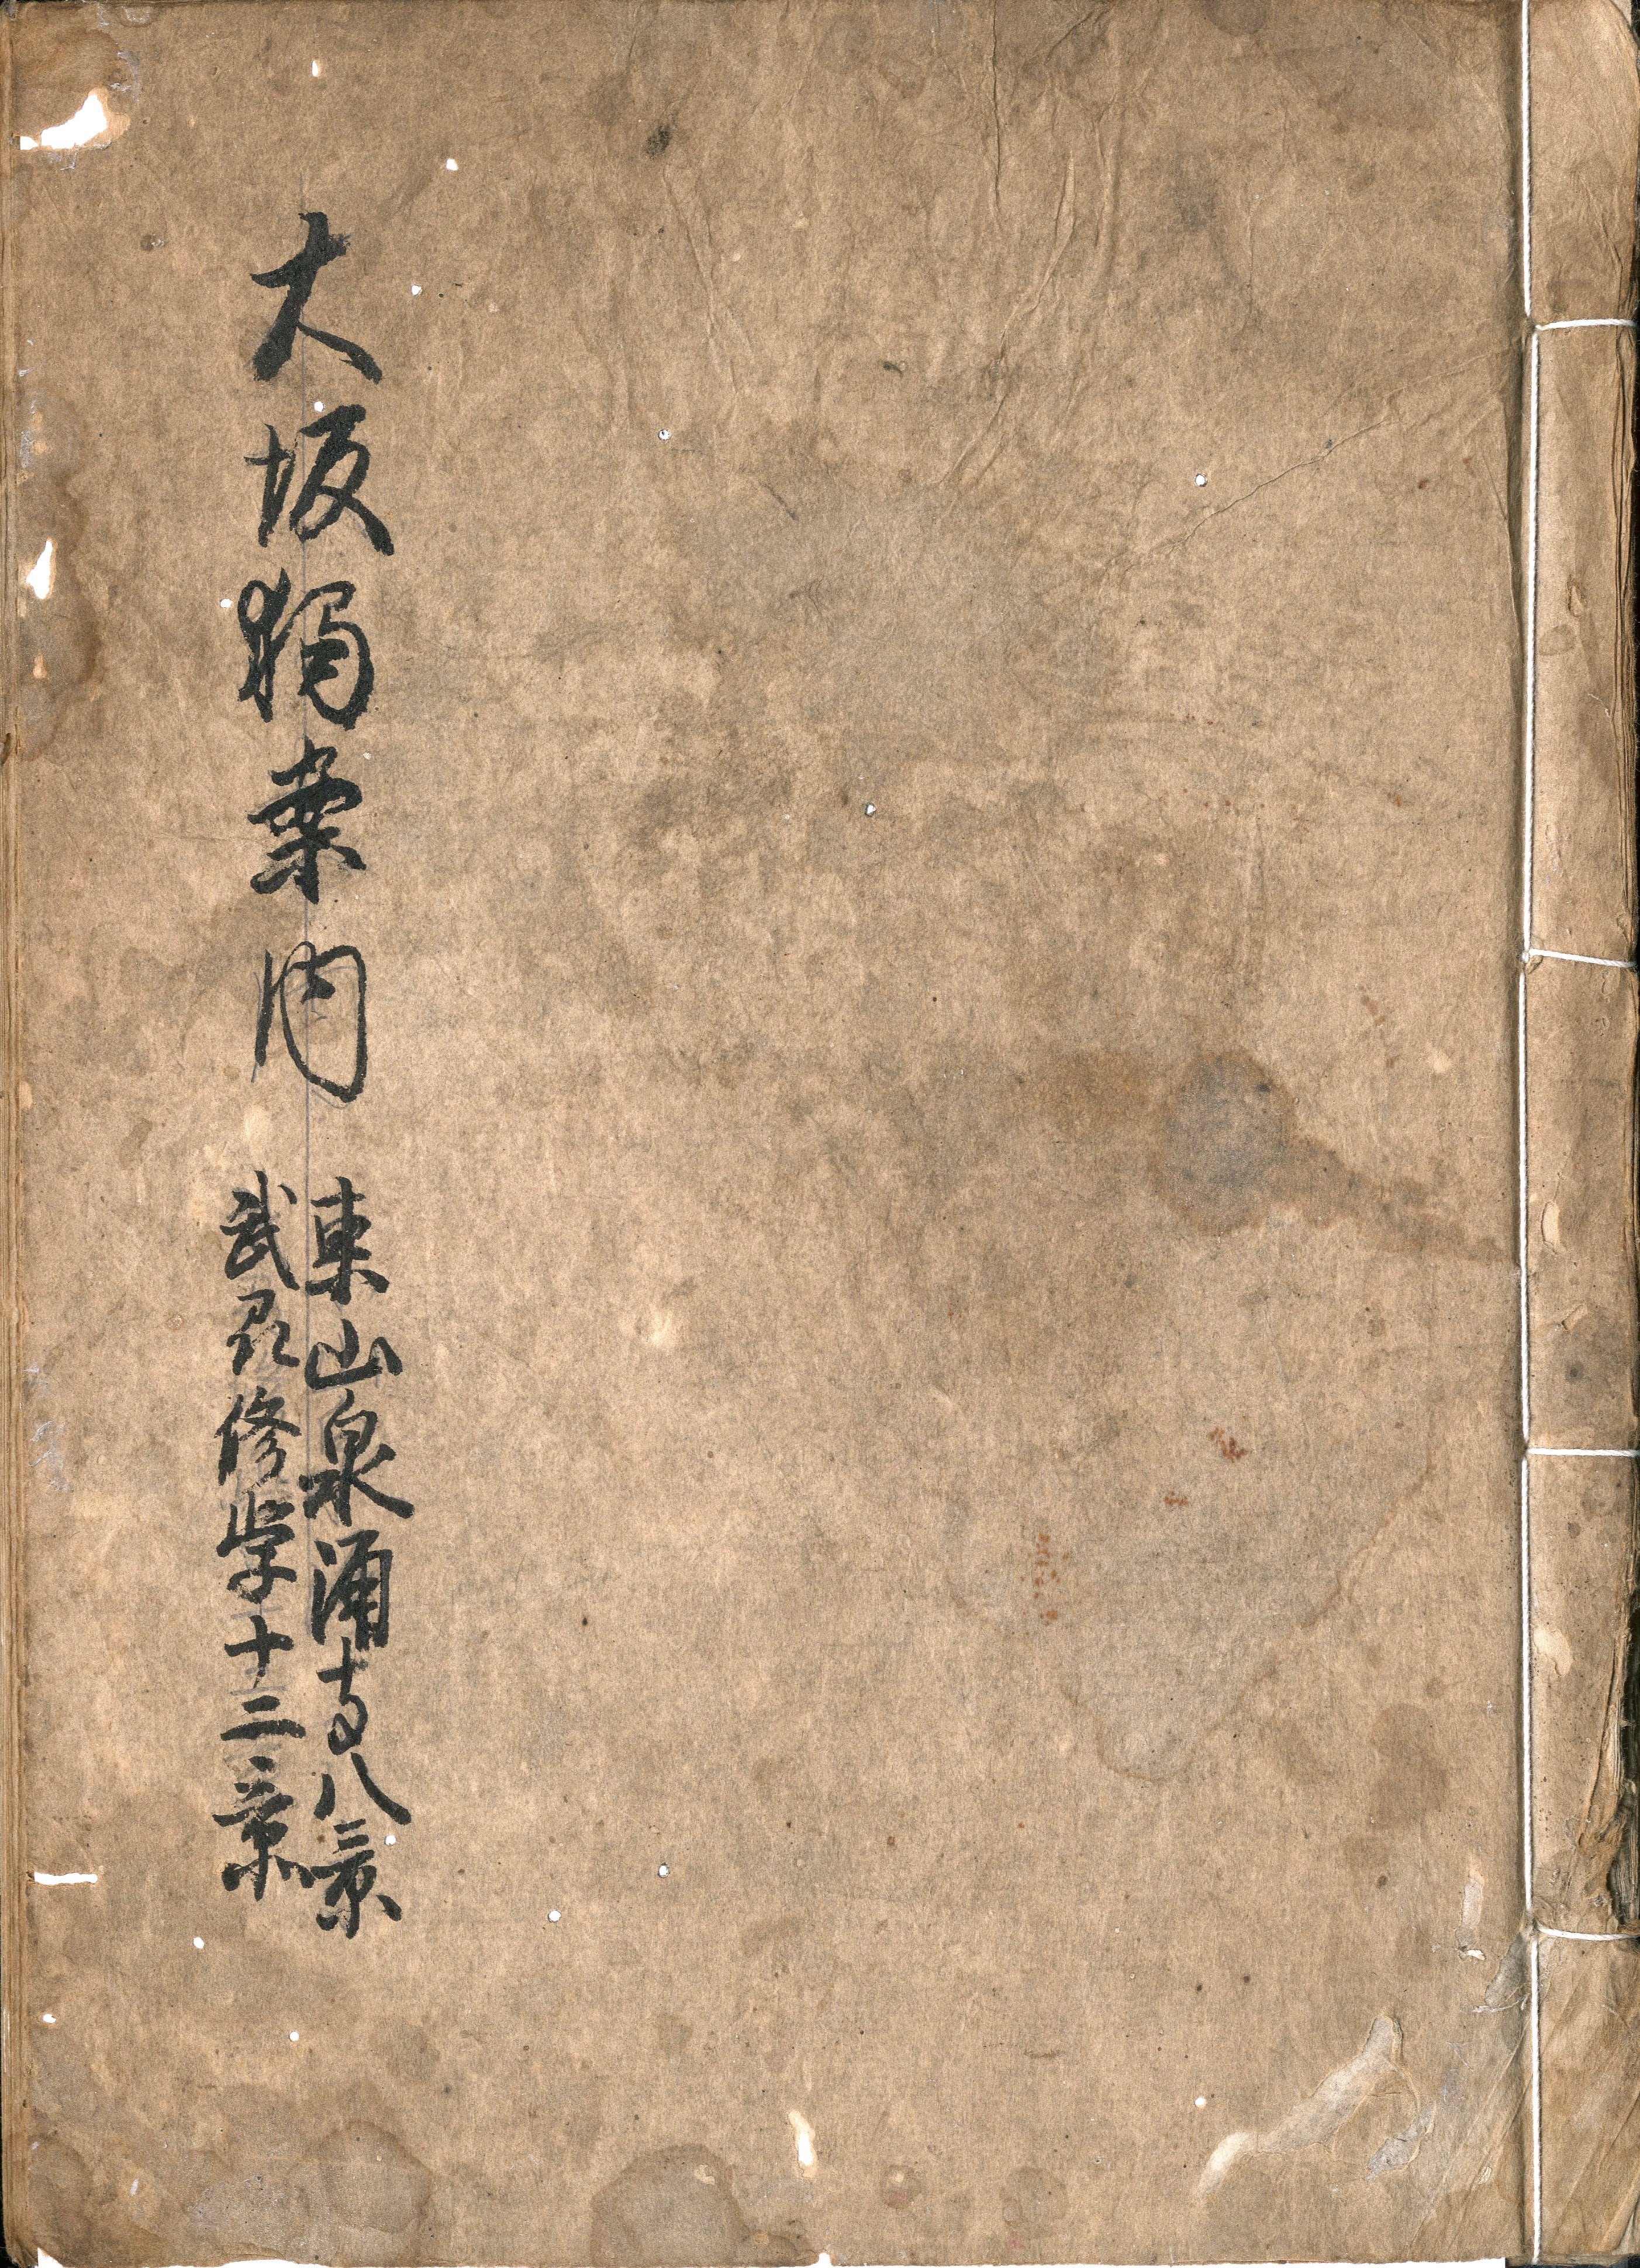 大坂獨案内
東山泉涌寺八景
武君修学十二景